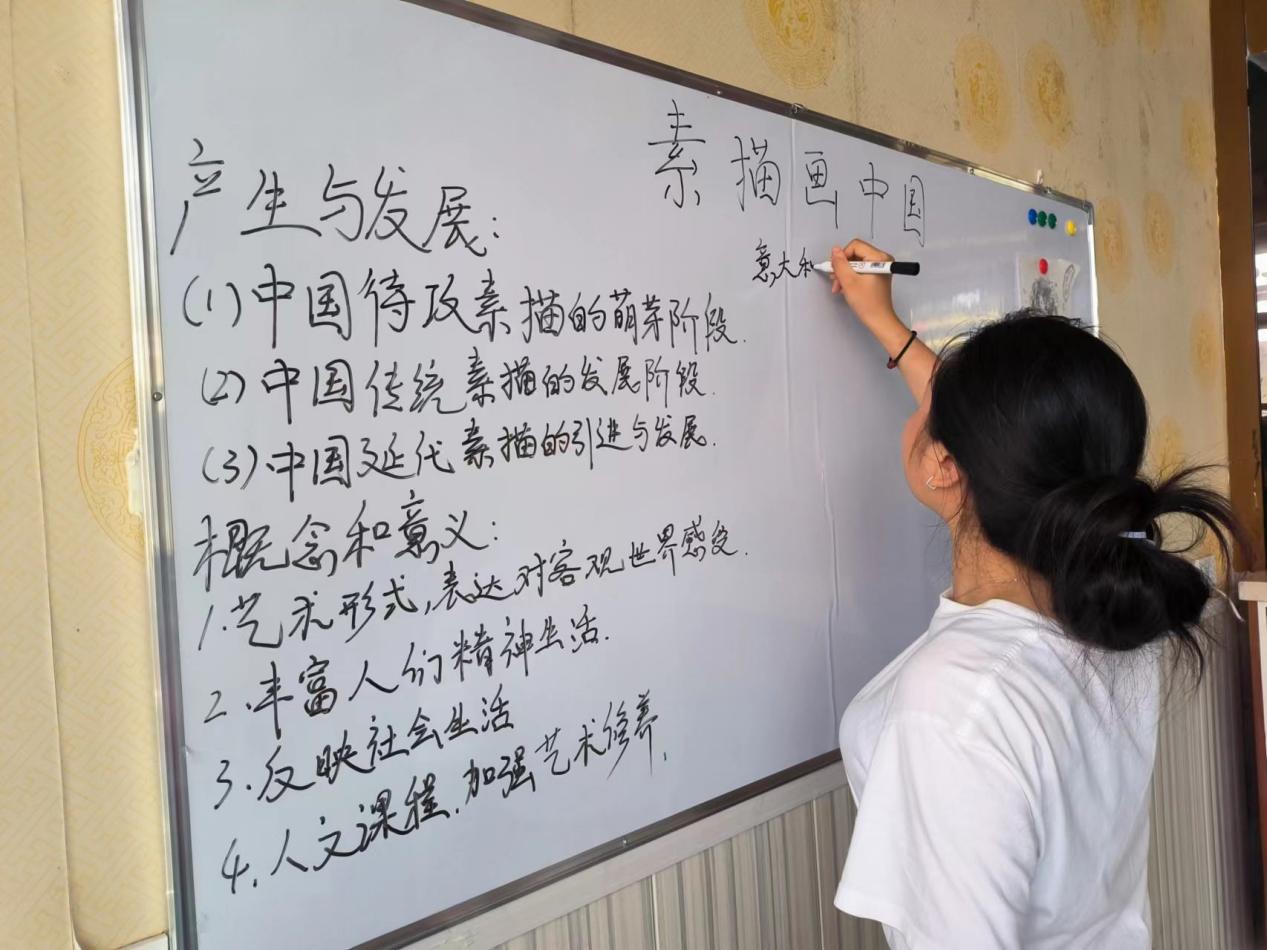 素描画中国
意大利
产生与发展:
(1)中国待攻素描的萌芽阶段.
(2)中国传统素描的发展阶段.
(3)中国延代素描的引进与发展.
概念和意义:
1.艺术形式,表达对客观世界感受.
2.丰富人们精神生活.
3.反映社会生活
4.人文课程.加强艺术修养.